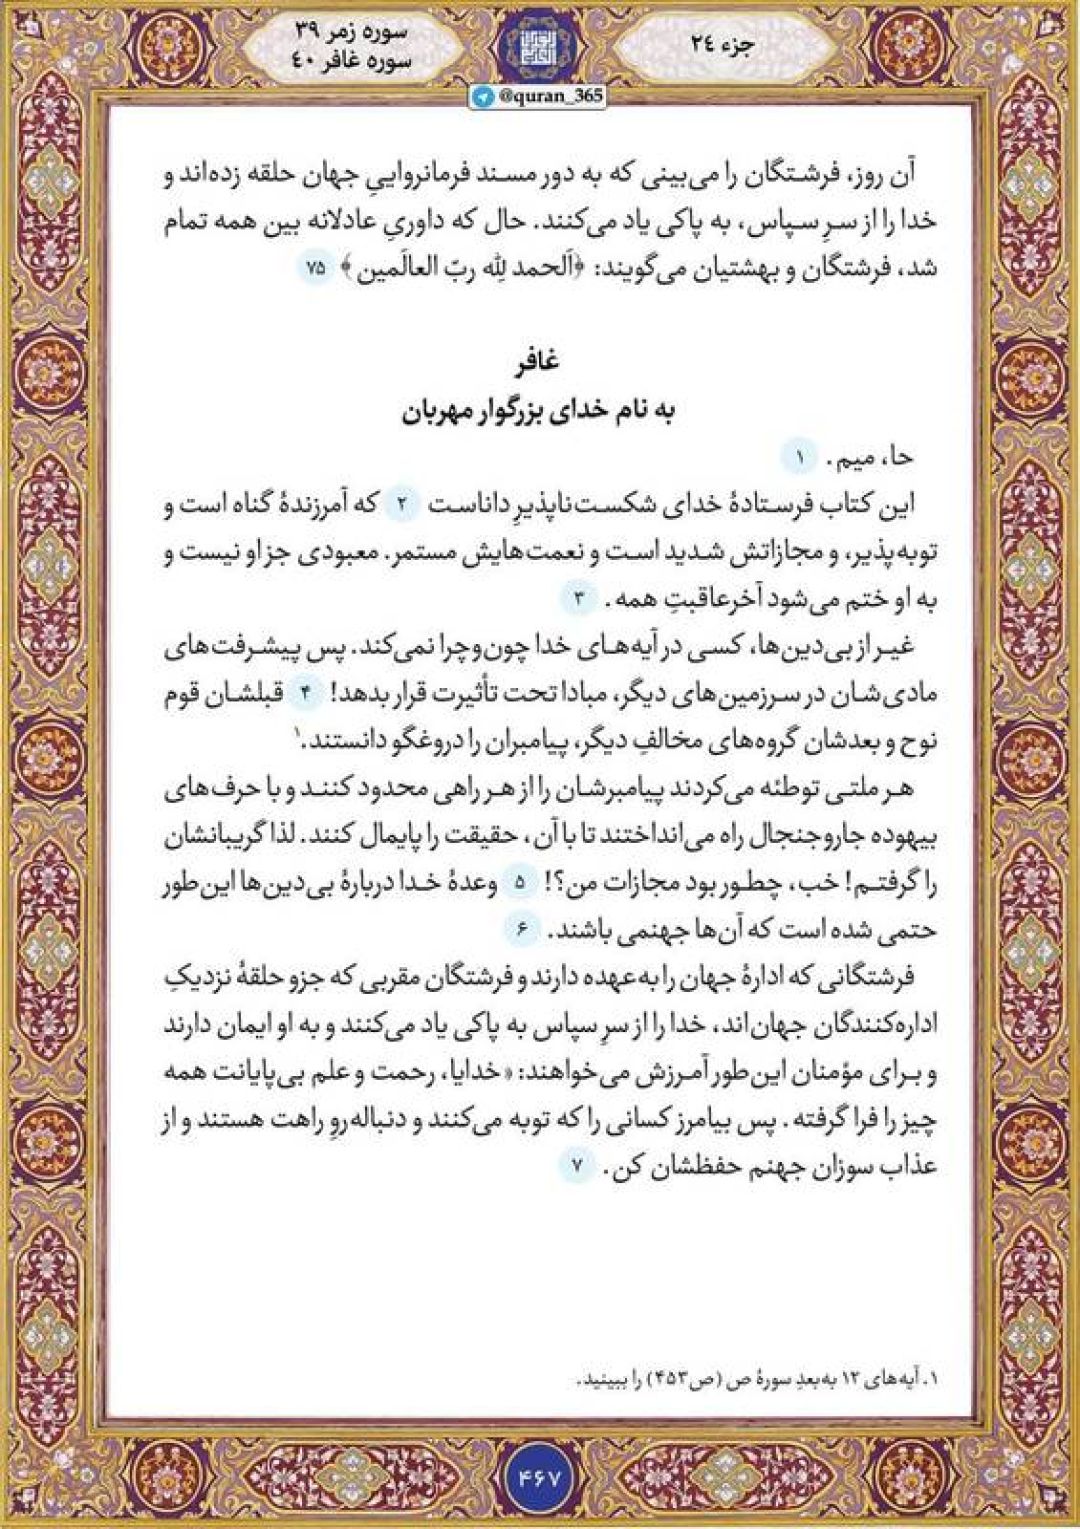 جزء ۲٤
سوره زمر ۳۹
سوره غافر ٤۰
@quran_365
آن روز، فرشتگان را می‌بینی که به دور مسند فرمانرواییِ جهان حلقه زده‌اند و
خدا را از سرِ سپاس، به پاکی یاد می‌کنند. حال که داوریِ عادلانه بین همه تمام
شد، فرشتگان و بهشتیان می‌گویند: ﴿اَلحمد لِلّٰه ربّ العالَمین﴾ ۷۵
غافر
به نام خدای بزرگوار مهربان
حا، میم. ۱
این کتاب فرستادهٔ خدای شکست‌ناپذیرِ داناست ۲ که آمرزندهٔ گناه است و
توبه‌پذیر، و مجازاتش شدید است و نعمت‌هایش مستمر. معبودی جز او نیست و
به او ختم می‌شود آخرعاقبتِ همه. ۳
غیر از بی‌دین‌ها، کسی در آیه‌های خدا چون‌وچرا نمی‌کند. پس پیشرفت‌های
مادی‌شان در سرزمین‌های دیگر، مبادا تحت تأثیرت قرار بدهد! ۴ قبلشان قوم
نوح و بعدشان گروه‌های مخالفِ دیگر، پیامبران را دروغگو دانستند.۱
هر ملتی توطئه می‌کردند پیامبرشان را از هر راهی محدود کنند و با حرف‌های
بیهوده جاروجنجال راه می‌انداختند تا با آن، حقیقت را پایمال کنند. لذا گریبانشان
را گرفتم! خب، چطور بود مجازات من؟! ۵ وعدهٔ خدا دربارهٔ بی‌دین‌ها این‌طور
حتمی شده است که آن‌ها جهنمی باشند. ۶
فرشتگانی که ادارهٔ جهان را به‌عهده دارند و فرشتگان مقربی که جزو حلقهٔ نزدیکِ
اداره‌کنندگان جهان‌اند، خدا را از سرِ سپاس به پاکی یاد می‌کنند و به او ایمان دارند
و برای مؤمنان این‌طور آمرزش می‌خواهند: «خدایا، رحمت و علم بی‌پایانت همه
چیز را فرا گرفته. پس بیامرز کسانی را که توبه می‌کنند و دنباله‌روِ راهت هستند و از
عذاب سوزان جهنم حفظشان کن. ۷
۱. آیه‌های ۱۲ به‌بعدِ سورهٔ ص (ص۴۵۳) را ببینید.
۴۶۷